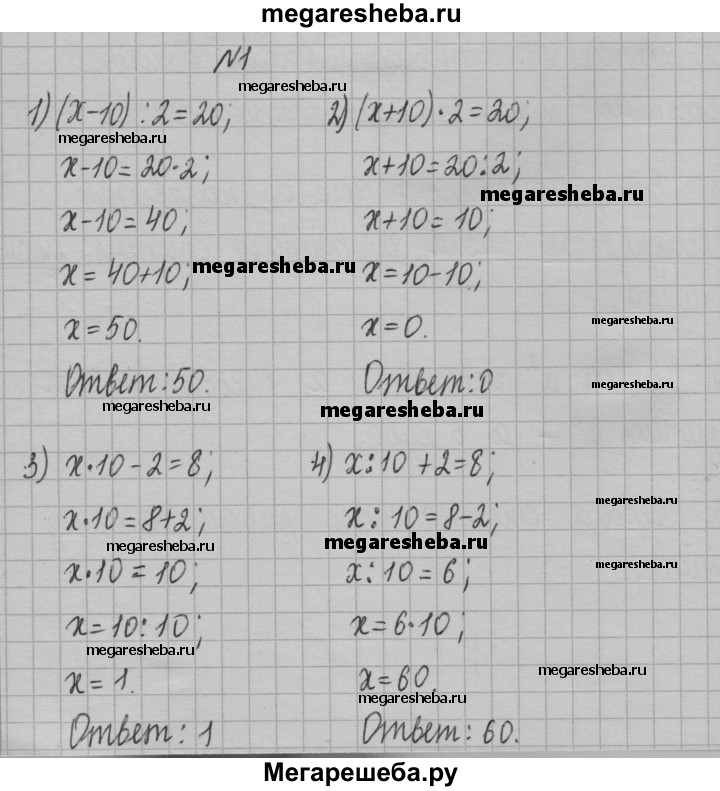 megaresheba.ru
№1
megaresheba.ru
1) (x-10) : 2 = 20;
megaresheba.ru
x-10 = 20·2;
x-10 = 40;
x = 40+10;
megaresheba.ru
x = 50.
Ответ: 50.
megaresheba.ru
2) (x+10)·2 = 20;
x+10 = 20:2;
megaresheba.ru
x+10 = 10;
x = 10-10;
x = 0.
megaresheba.ru
Ответ: 0
megaresheba.ru
megaresheba.ru
3) x·10 - 2 = 8;
x·10 = 8+2;
megaresheba.ru
x·10 = 10;
x = 10:10;
megaresheba.ru
x = 1.
Ответ: 1
4) x:10 + 2 = 8;
megaresheba.ru
x: 10 = 8-2;
megaresheba.ru
x: 10 = 6;
megaresheba.ru
x = 6·10;
x = 60.
megaresheba.ru
megaresheba.ru
Ответ: 60.
Мегарешеба.ру